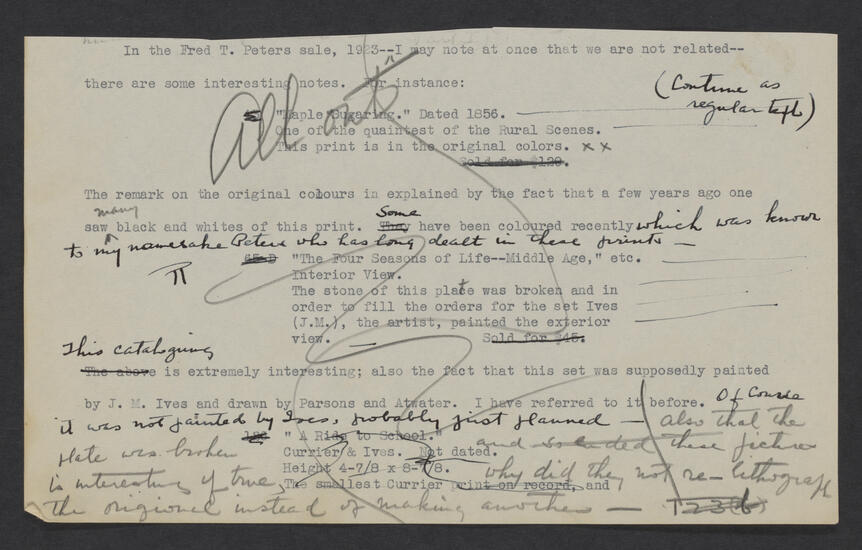 In the Fred T. Peters sale, 1923--I may note at once that we are not related--
there are some interesting notes. For instance:
(Continue as
regular text)
All one
"Maple Sugaring." Dated 1856.
One of the quaintest of the Rural Scenes.
This print is in the original colors. x x
Sold for $120.
The remark on the original colours in explained by the fact that a few years ago one
many
saw black and whites of this print. They Some have been coloured recently which was known
to my namesake Peters who has long dealt in these prints —
"The Four Seasons of Life--Middle Age," etc.
Interior View.
The stone of this plate was broken and in
order to fill the orders for the set Ives
(J.M.), the artist, painted the exterior
view. — Sold for $45.
This cataloguing
The above is extremely interesting; also the fact that this set was supposedly painted
by J. M. Ives and drawn by Parsons and Atwater. I have referred to it before. Of Course
it was not painted by Ives, probably just planned — also that the
"A Ride to School." and these pictures
plate was broken Currier & Ives. Not dated.
Height 4-7/8 x 8-7/8. why did they not re-lithograph
is interesting if true The smallest Currier print on record, and
the origional instead of making another — 123(b)